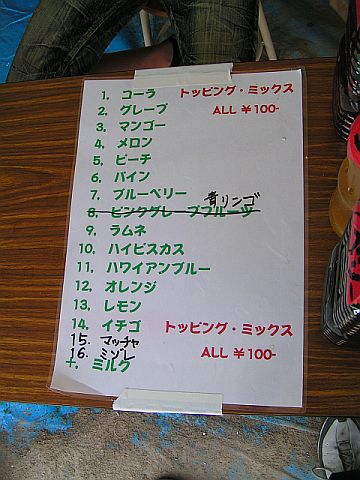 1. コーラ トッピング・ミックス
2. グレープ ALL ¥100-
3. マンゴー
4. メロン
5. ピーチ
6. パイン
7. ブルーベリー
青リンゴ
8. ピンクグレープフルーツ
9. ラムネ
10. ハイビスカス
11. ハワイアンブルー
12. オレンジ
13. レモン
14. イチゴ トッピング・ミックス
15. マッチャ
16. ミゾレ ALL ¥100-
+. ミルク